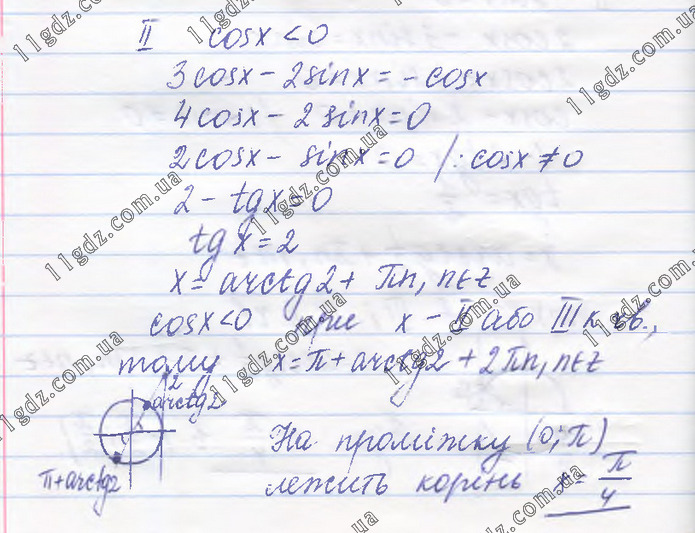 II cosx < 0
3cosx - 2sinx = - cosx
4cosx - 2sinx = 0
2cosx - sinx = 0 /: cosx ≠ 0
2 - tgx = 0
tgx = 2
x = arctg2 + πn, n∈z
cosx<0 при x - II або III к чв.,
тому x = π + arctg2 + 2πn, n∈z
2
arctg2
π+arctg2
На проміжку (0; π)
лежить корінь x = π/4
11gdz.com.ua
11gdz.com.ua
11gdz.com.ua
11gdz.com.ua
11gdz.com.ua
11gdz.com.ua
11gdz.com.ua
11gdz.com.ua
11gdz.com.ua
11gdz.com.ua